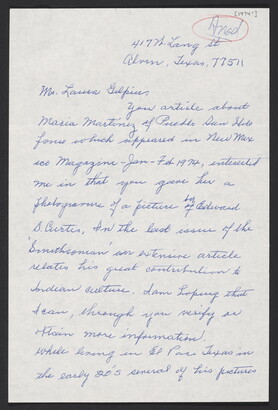 [1974]
Ansd
417 W. Lang St
Alvin, Texas, 77511
Ms. Laura Gilpin,
You article about
Maria Martinez of Pueblo San Ilde
fonso which appeared in New Mex
ico Magazine-Jan-Feb 1974, interested
me in that you gave her a
photogravure of a picture by Edward
S. Curtis, In the last issue of the
Smithsonian an extensive article
relates his great contribution to
Indian culture. I am hoping that
I can, through you verify or
obtain more information.
While living in El Paso Texas in
the early 20's several of his pictures